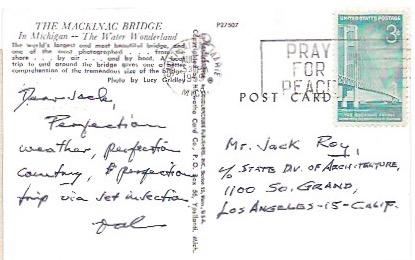 THE MACKINAC BRIDGE
In Michigan -- The Water Wonderland
The world's largest and most beautiful bridge, and
one of the most photographed . . . from
shore . . . by air . . . and by boat. A boat
trip to and around the bridge gives one a better
comprehension of the tremendous size of the bridge.
Photo by Lucy Gridley
P27507
POST CARD
PRAY
FOR
PEACE
UNITED STATES POSTAGE
3¢
Dear Jack,
Perfection
weather, perfection
country, & perfection
trip via jet injection
Mr. Jack Roy,
c/o State Div. of Architecture,
1100 So. Grand,
Los Angeles-15-Calif.